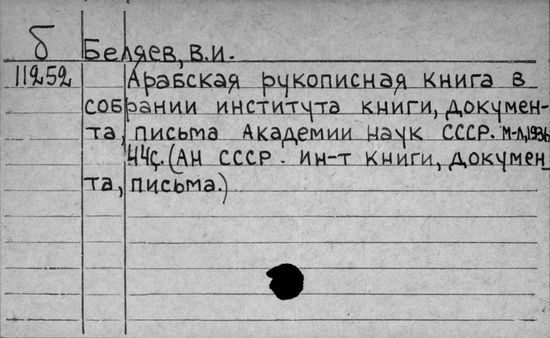 б Беляев, В.И.
11252 Арабская рукописная книга в
собрании института книги, докумен-
та, письма Академии наук СССР. М-Л, 1936
44с. (АН СССР. Ин-т книги, докумен_
та, письма.)